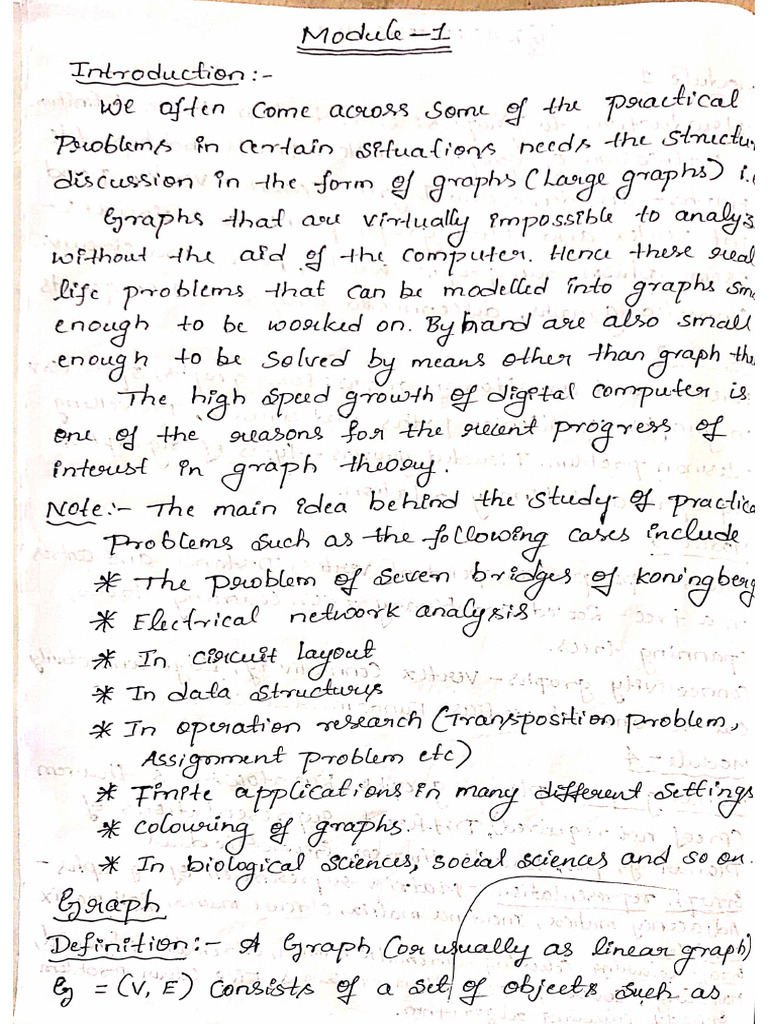 Module-1
Introduction:-
We often come across some of the practical
Problems in certain situations needs the structu
discussion in the form of graphs (Large graphs) i.
Graphs that are virtually impossible to analys
without the aid of the computer. Hence these real
life problems that can be modelled into graphs sm
enough to be worked on. By hand are also small
enough to be solved by means other than graph the
The high speed growth of digital computer is
one of the reasons for the recent progress of
interest in graph theory.
Note:- The main idea behind the study of practica
Problems such as the following cases include
* The problem of seven bridges of koningberg
* Electrical network analysis
* In circuit layout
* In data structurs
* In operation research (Transposition problem,
Assignment problem etc)
* Finite applications in many different settings
* colouring of graphs.
* In biological sciences, social sciences and so on.
Graph
Definition:- A Graph (or usually as linear graph)
G = (V, E) consists of a set of objects such as